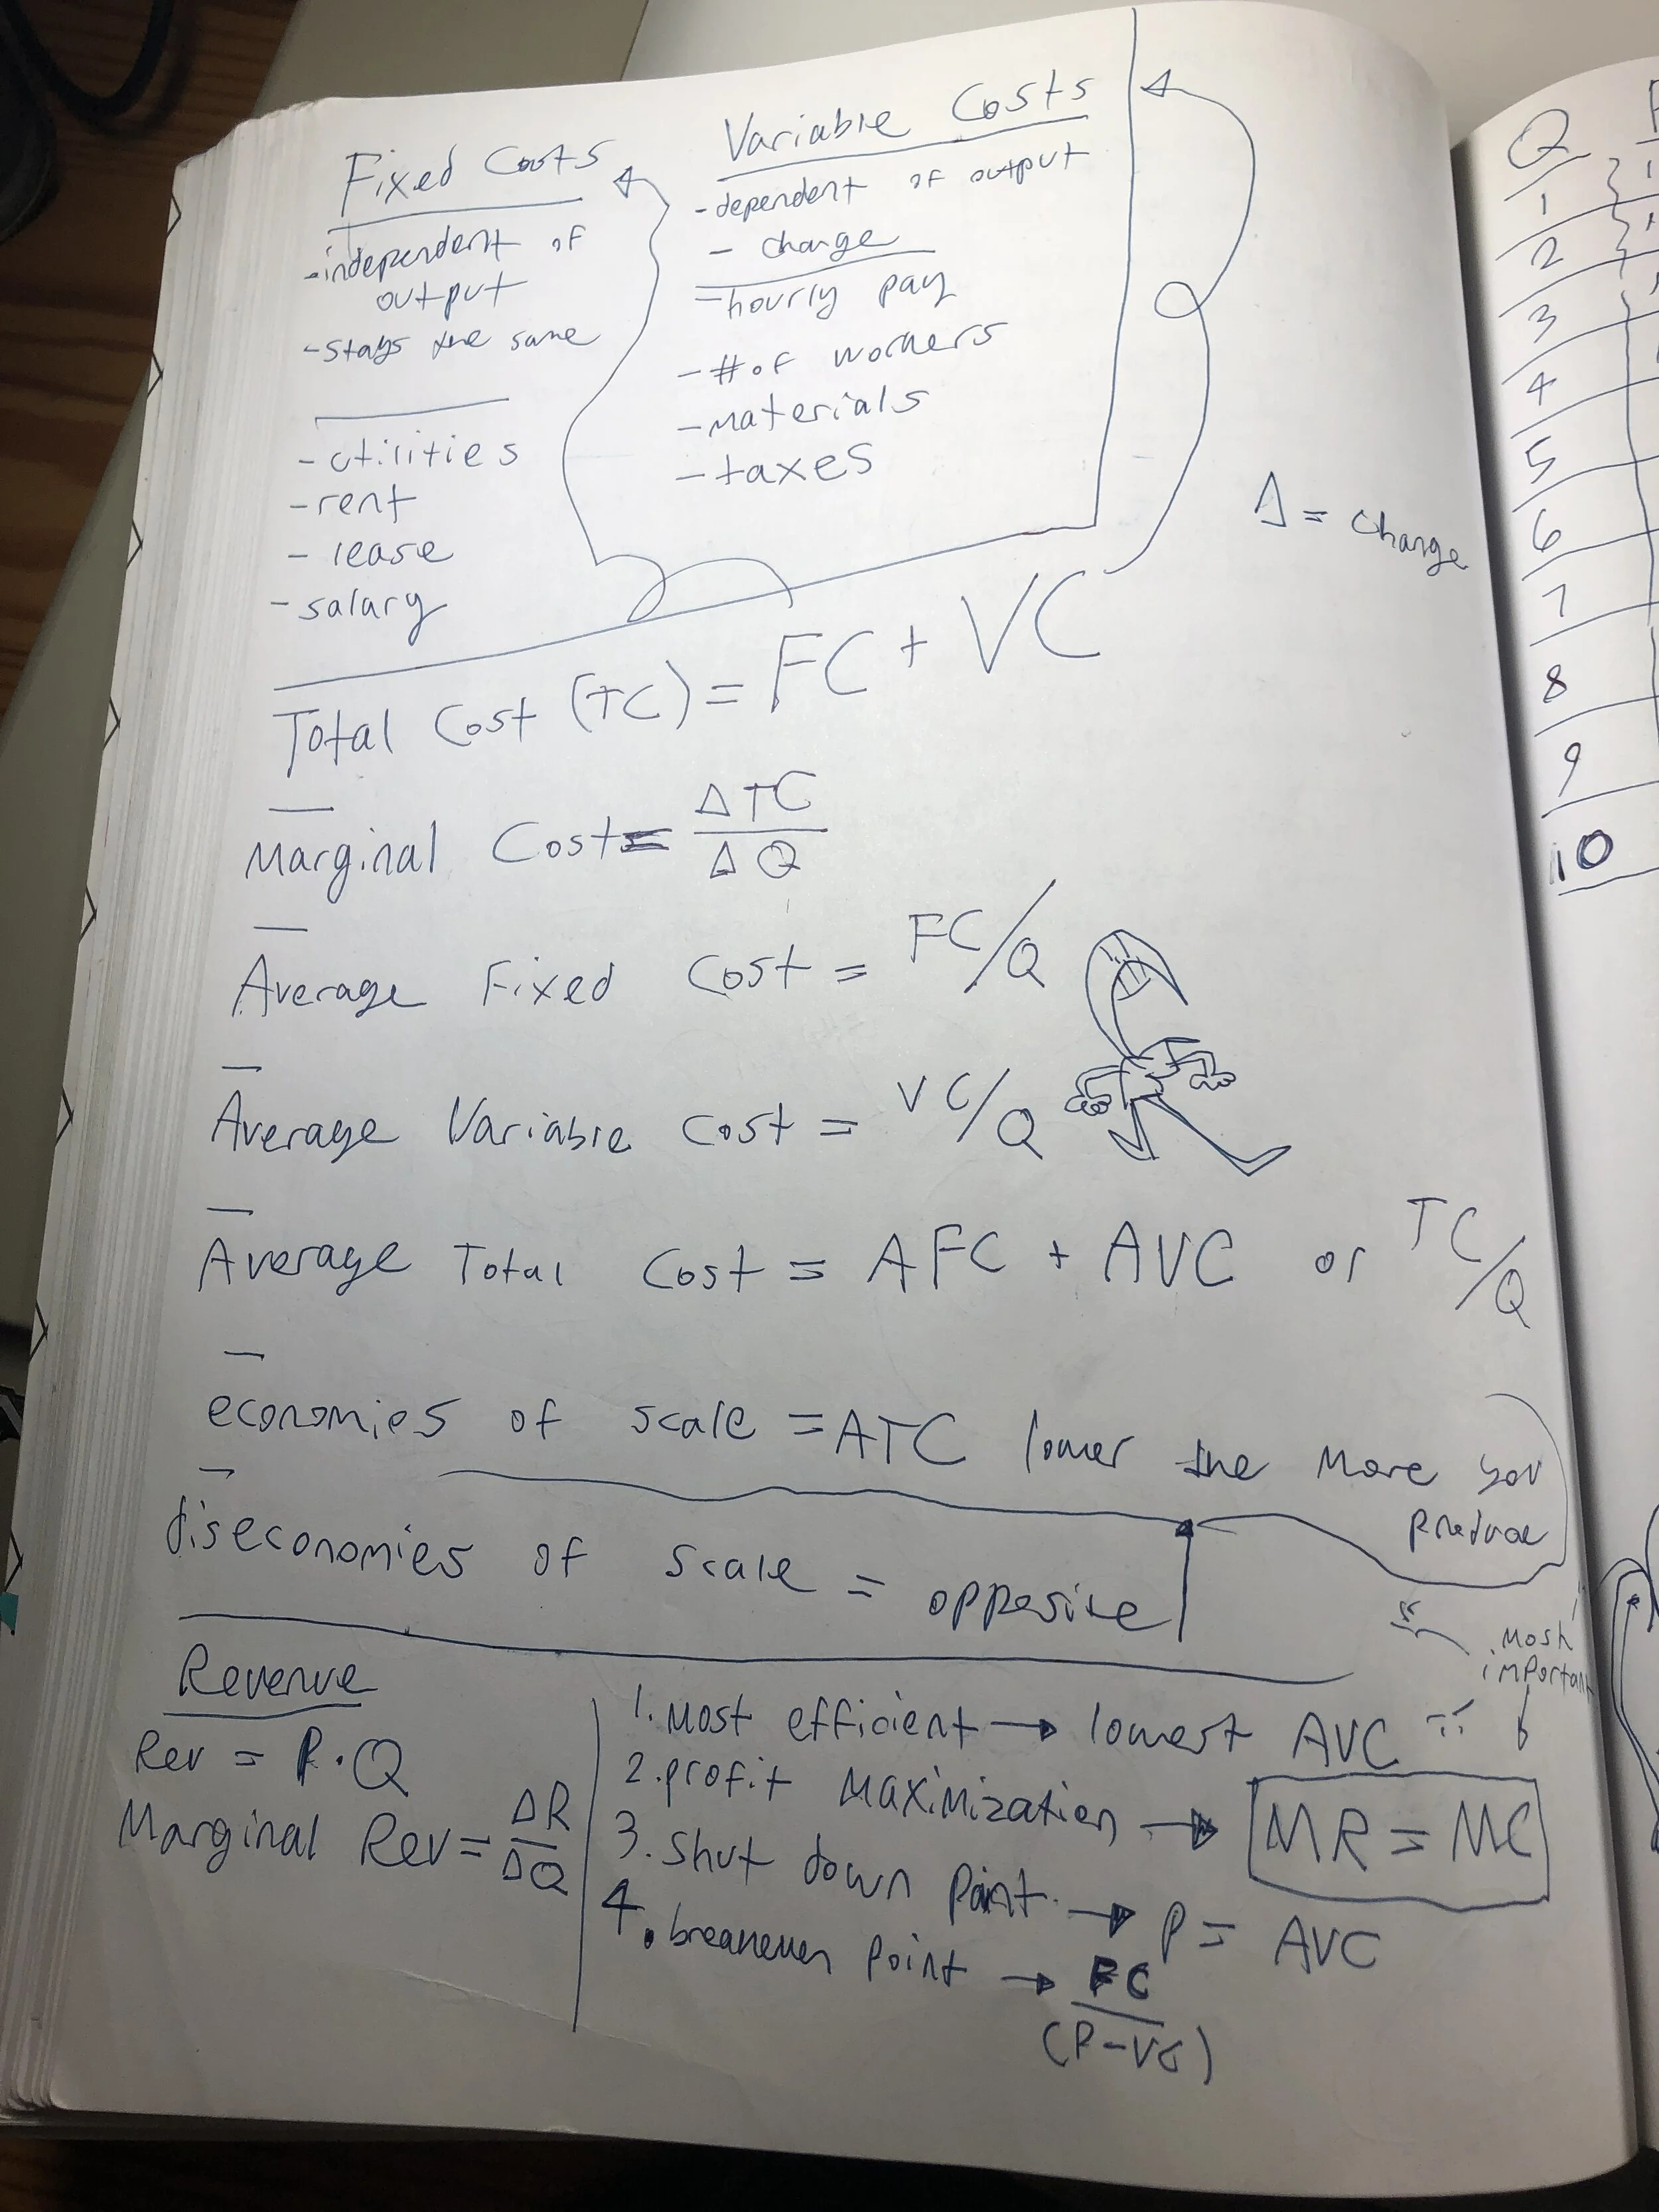 Fixed Costs
- independent of
output
- stays the same
- utilities
- rent
- lease
- salary
Variable Costs
- dependent of output
- change
- hourly pay
- # of workers
- materials
- taxes
Δ = change
Total Cost (TC) = FC + VC
Marginal Cost = ΔTC / ΔQ
Average Fixed Cost = FC/Q
Average Variable Cost = VC/Q
Average Total Cost = AFC + AVC or TC/Q
economies of scale = ATC lower the more you
produce
diseconomies of scale = opposite
Most
important
Revenue
Rev = P·Q
Marginal Rev = ΔR / ΔQ
1. Most efficient → lowest AVC
2. profit Maximization → MR = MC
3. Shut down point → P = AVC
4. breakeven point → FC / (P-VC)
Q
1
2
3
4
5
6
7
8
9
10